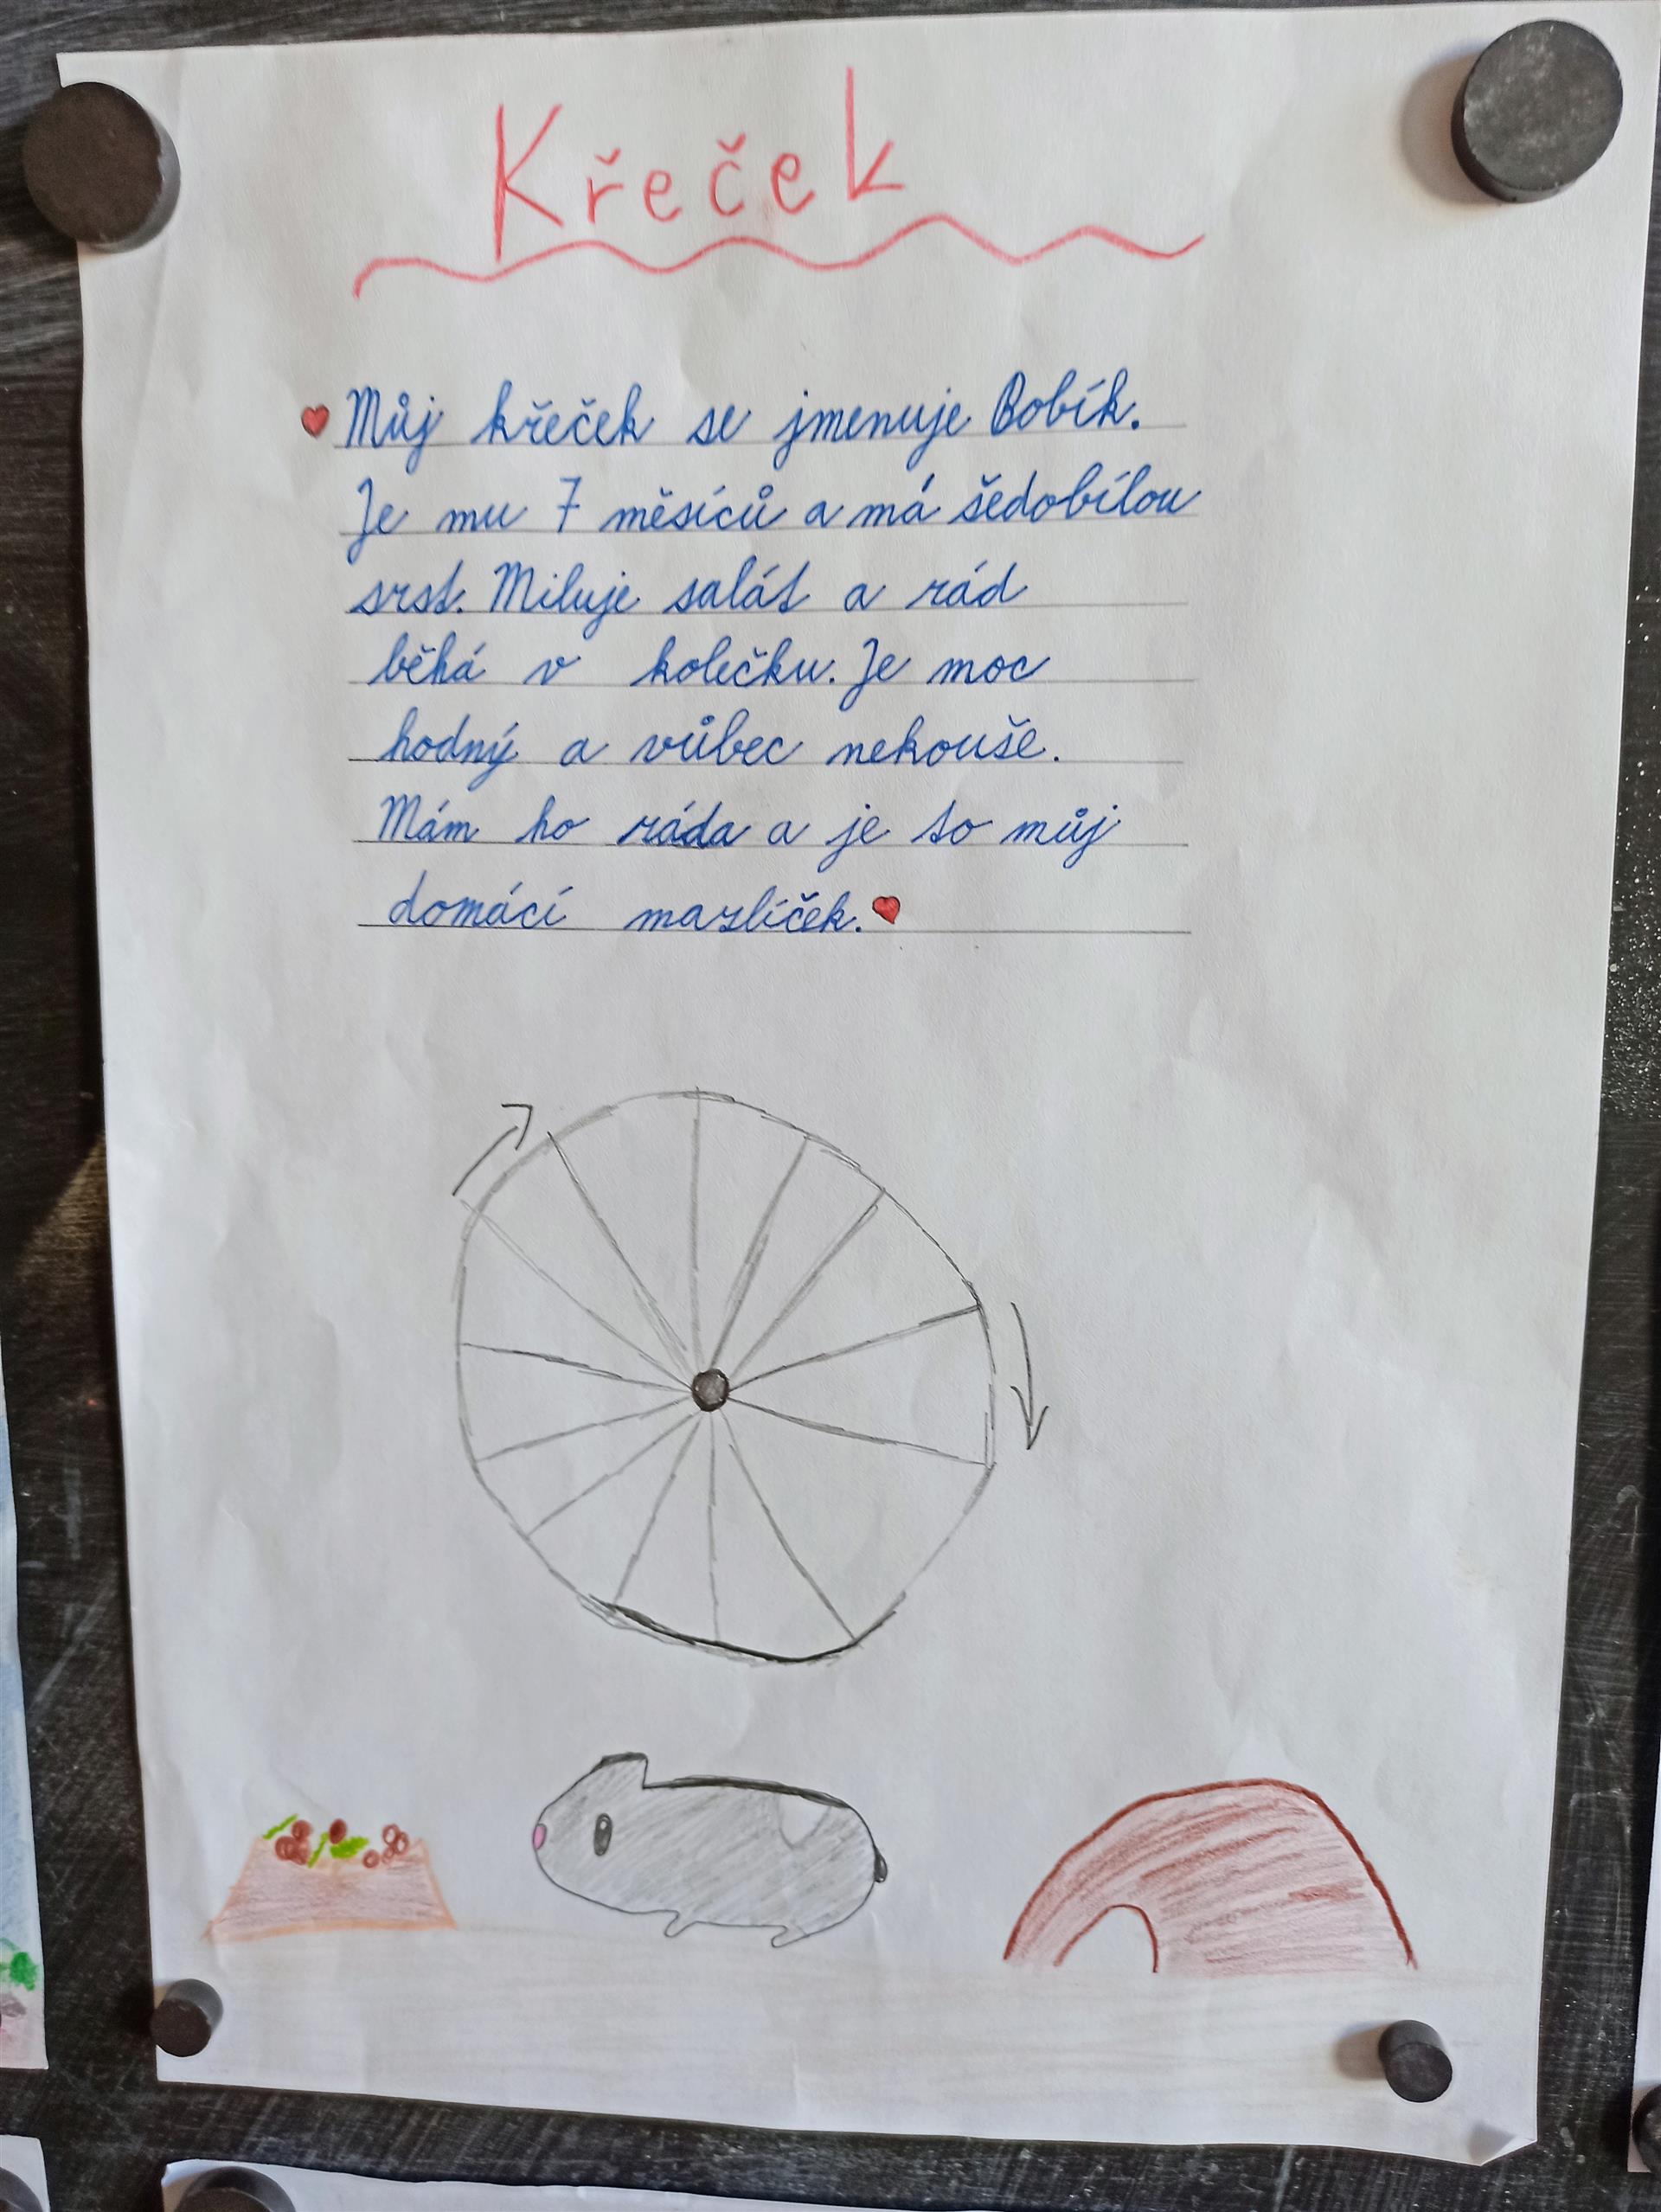 Křeček
Můj křeček se jmenuje Bobík.
Je mu 7 měsíců a má šedobílou
srst. Miluje salát a rád
běhá v kolečku. Je moc
hodný a vůbec nekouše.
Mám ho ráda a je to můj
domácí mazlíček.